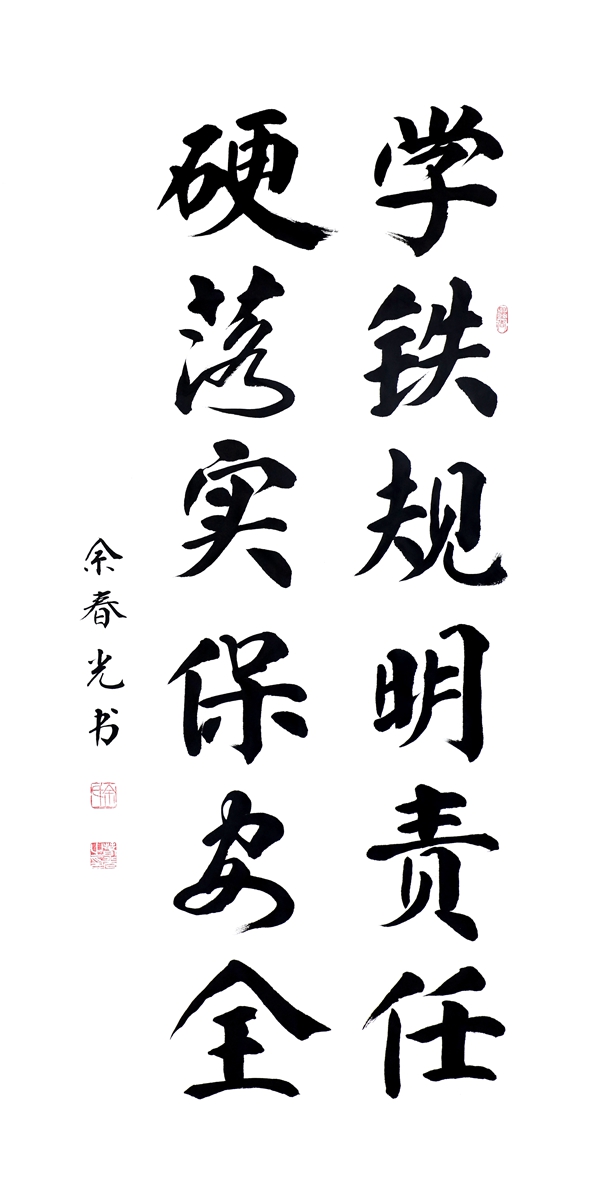 学铁规明责任
硬落实保安全
余春光书